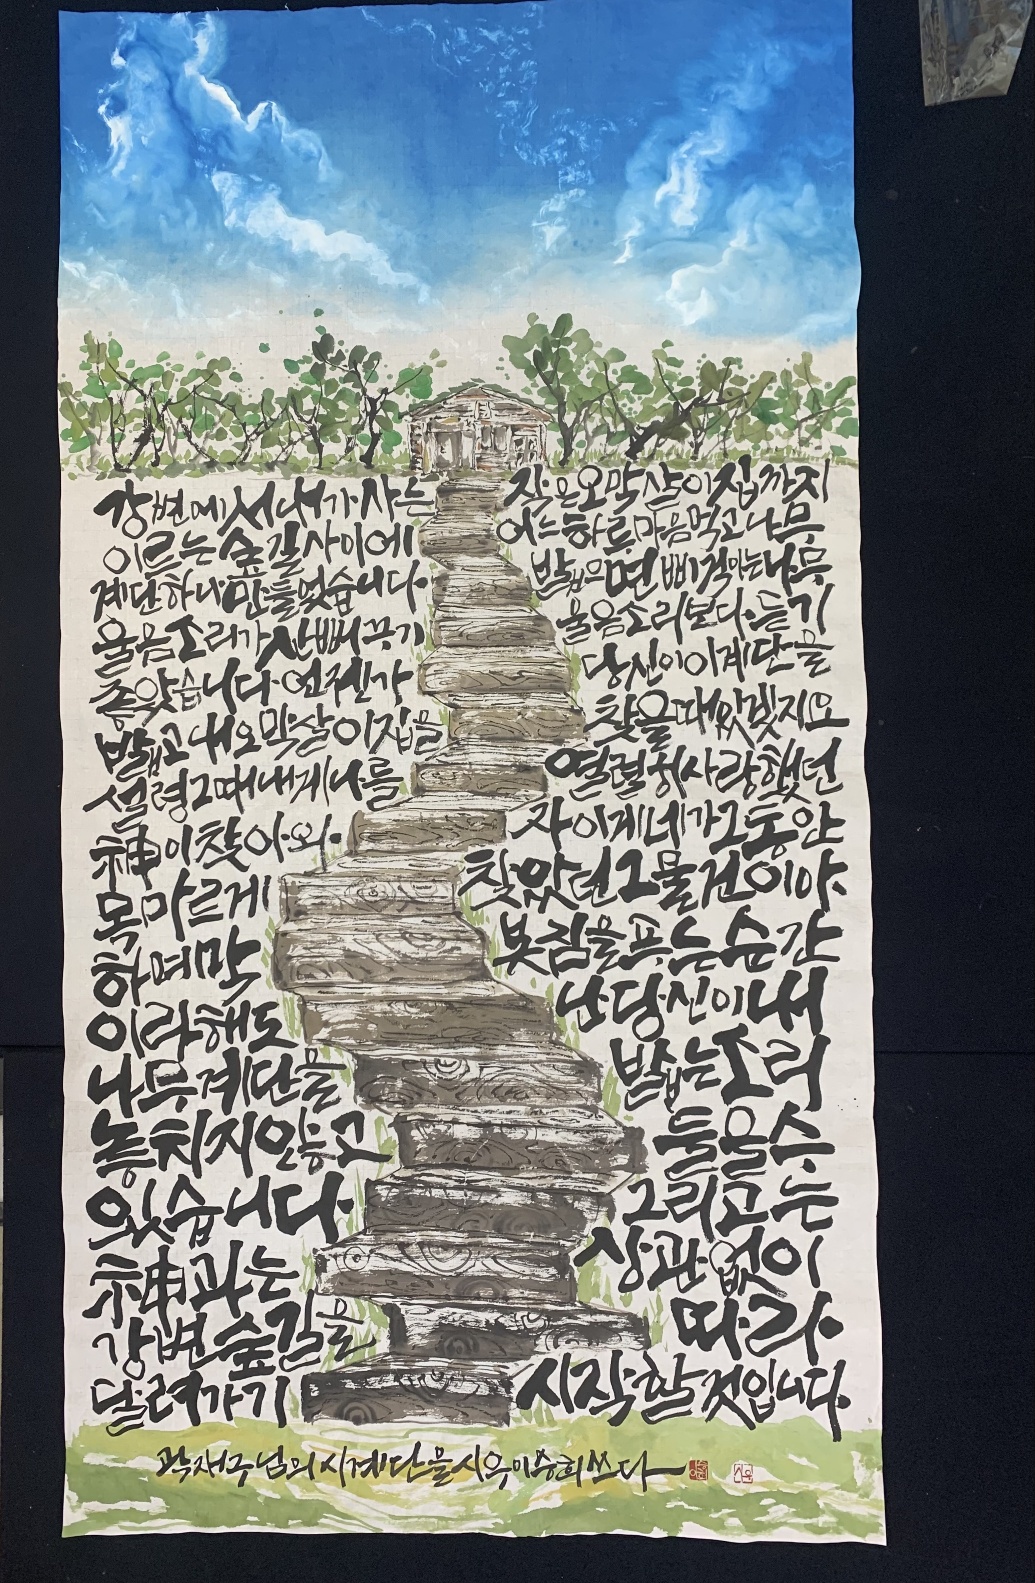 강변에서 내가 사는 작은 오막살이 집까지
이르는 숲길 사이에 어느 하루 마음먹고 나무
계단 하나 만들었습니다 밟으면 삐걱이는 나무
울음소리가 산뻐꾸기 울음소리보다 듣기
좋았습니다 언젠가 당신이 이 계단을
밟고 내 오막살이집을 찾을 때 있겠지요
설령 그때 내게 나를 열렬히 사랑했던
神이 찾아와 자 이게 네가 그동안
목마르게 찾았던 그 물건이야
하며 막 봇짐을 푸는 순간
이라 해도 난 당신이 내
나무계단을 밟는 소리
놓치지 않고 들을 수
있습니다 그리고는
神과는 상관없이
강변 숲길을 따라
달려가기 시작할 것입니다
곽재구님의 시 계단을 시우 이승희 쓰다